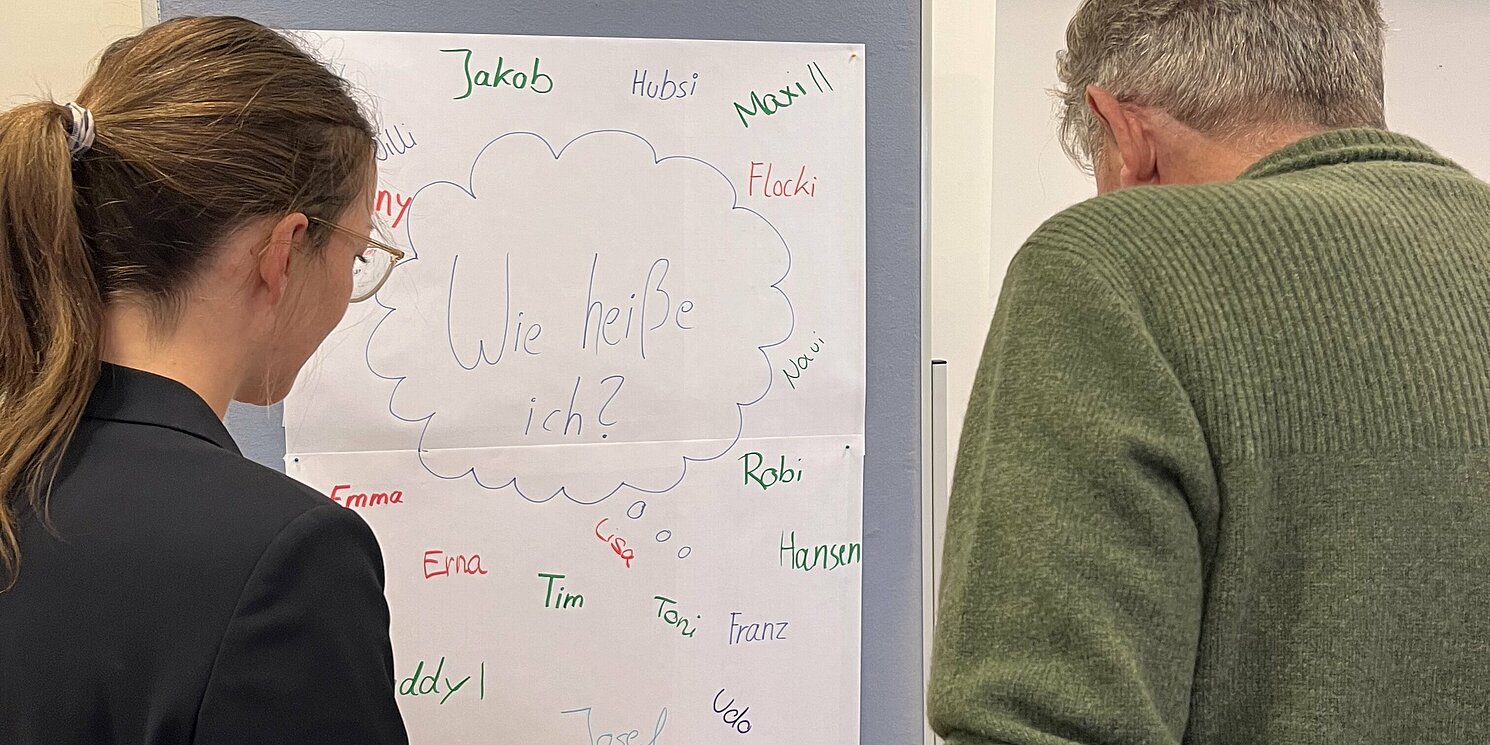 Jakob
Hubsi
Maxi II
illi
Flocki
ny
Wie heiße
ich?
Navi
Robi
Emma
Lisa
Hansen
Erna
Tim
Toni
Franz
ddy I
Udo
Josef